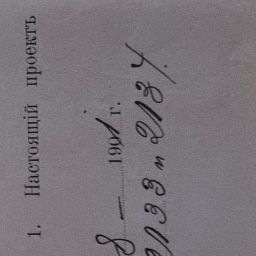 1. Настоящій проектъ
8 — 1901 г.
2133 и 2134.